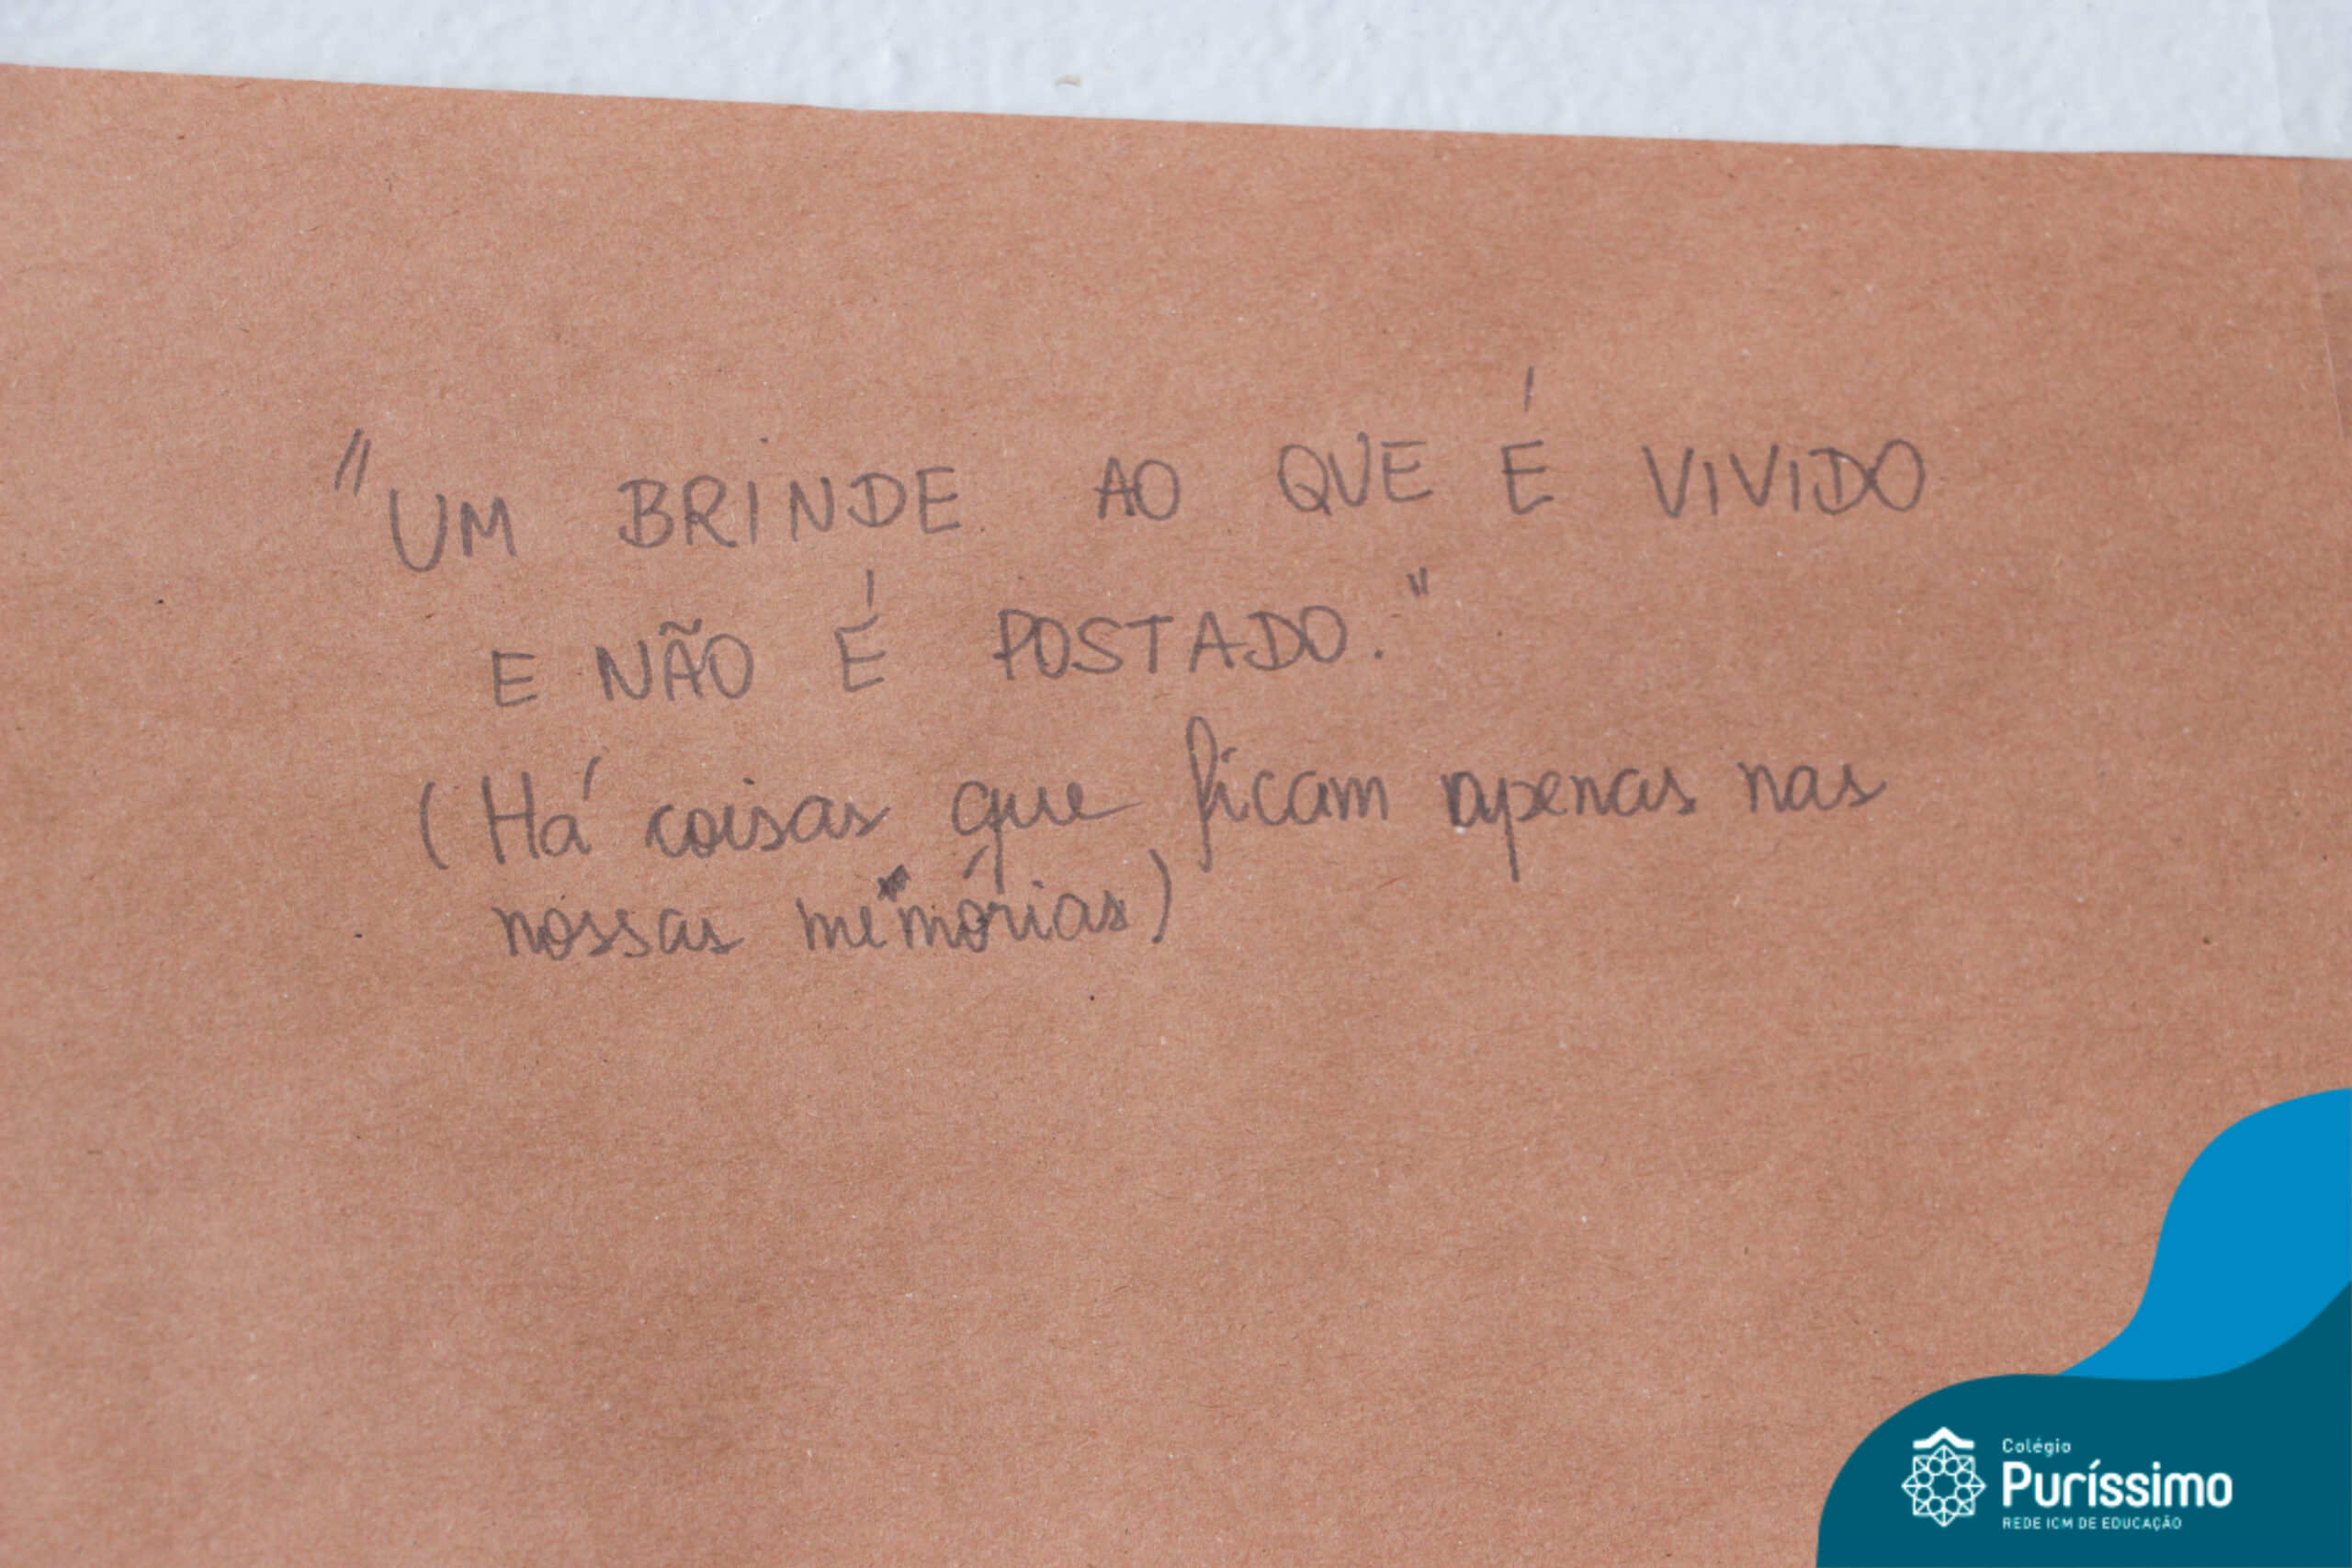 "UM BRINDE AO QUE É VIVIDO
E NÃO É POSTADO."
(Há coisas que ficam apenas nas
nossas memórias)
Colégio
Puríssimo
REDE ICM DE EDUCAÇÃO